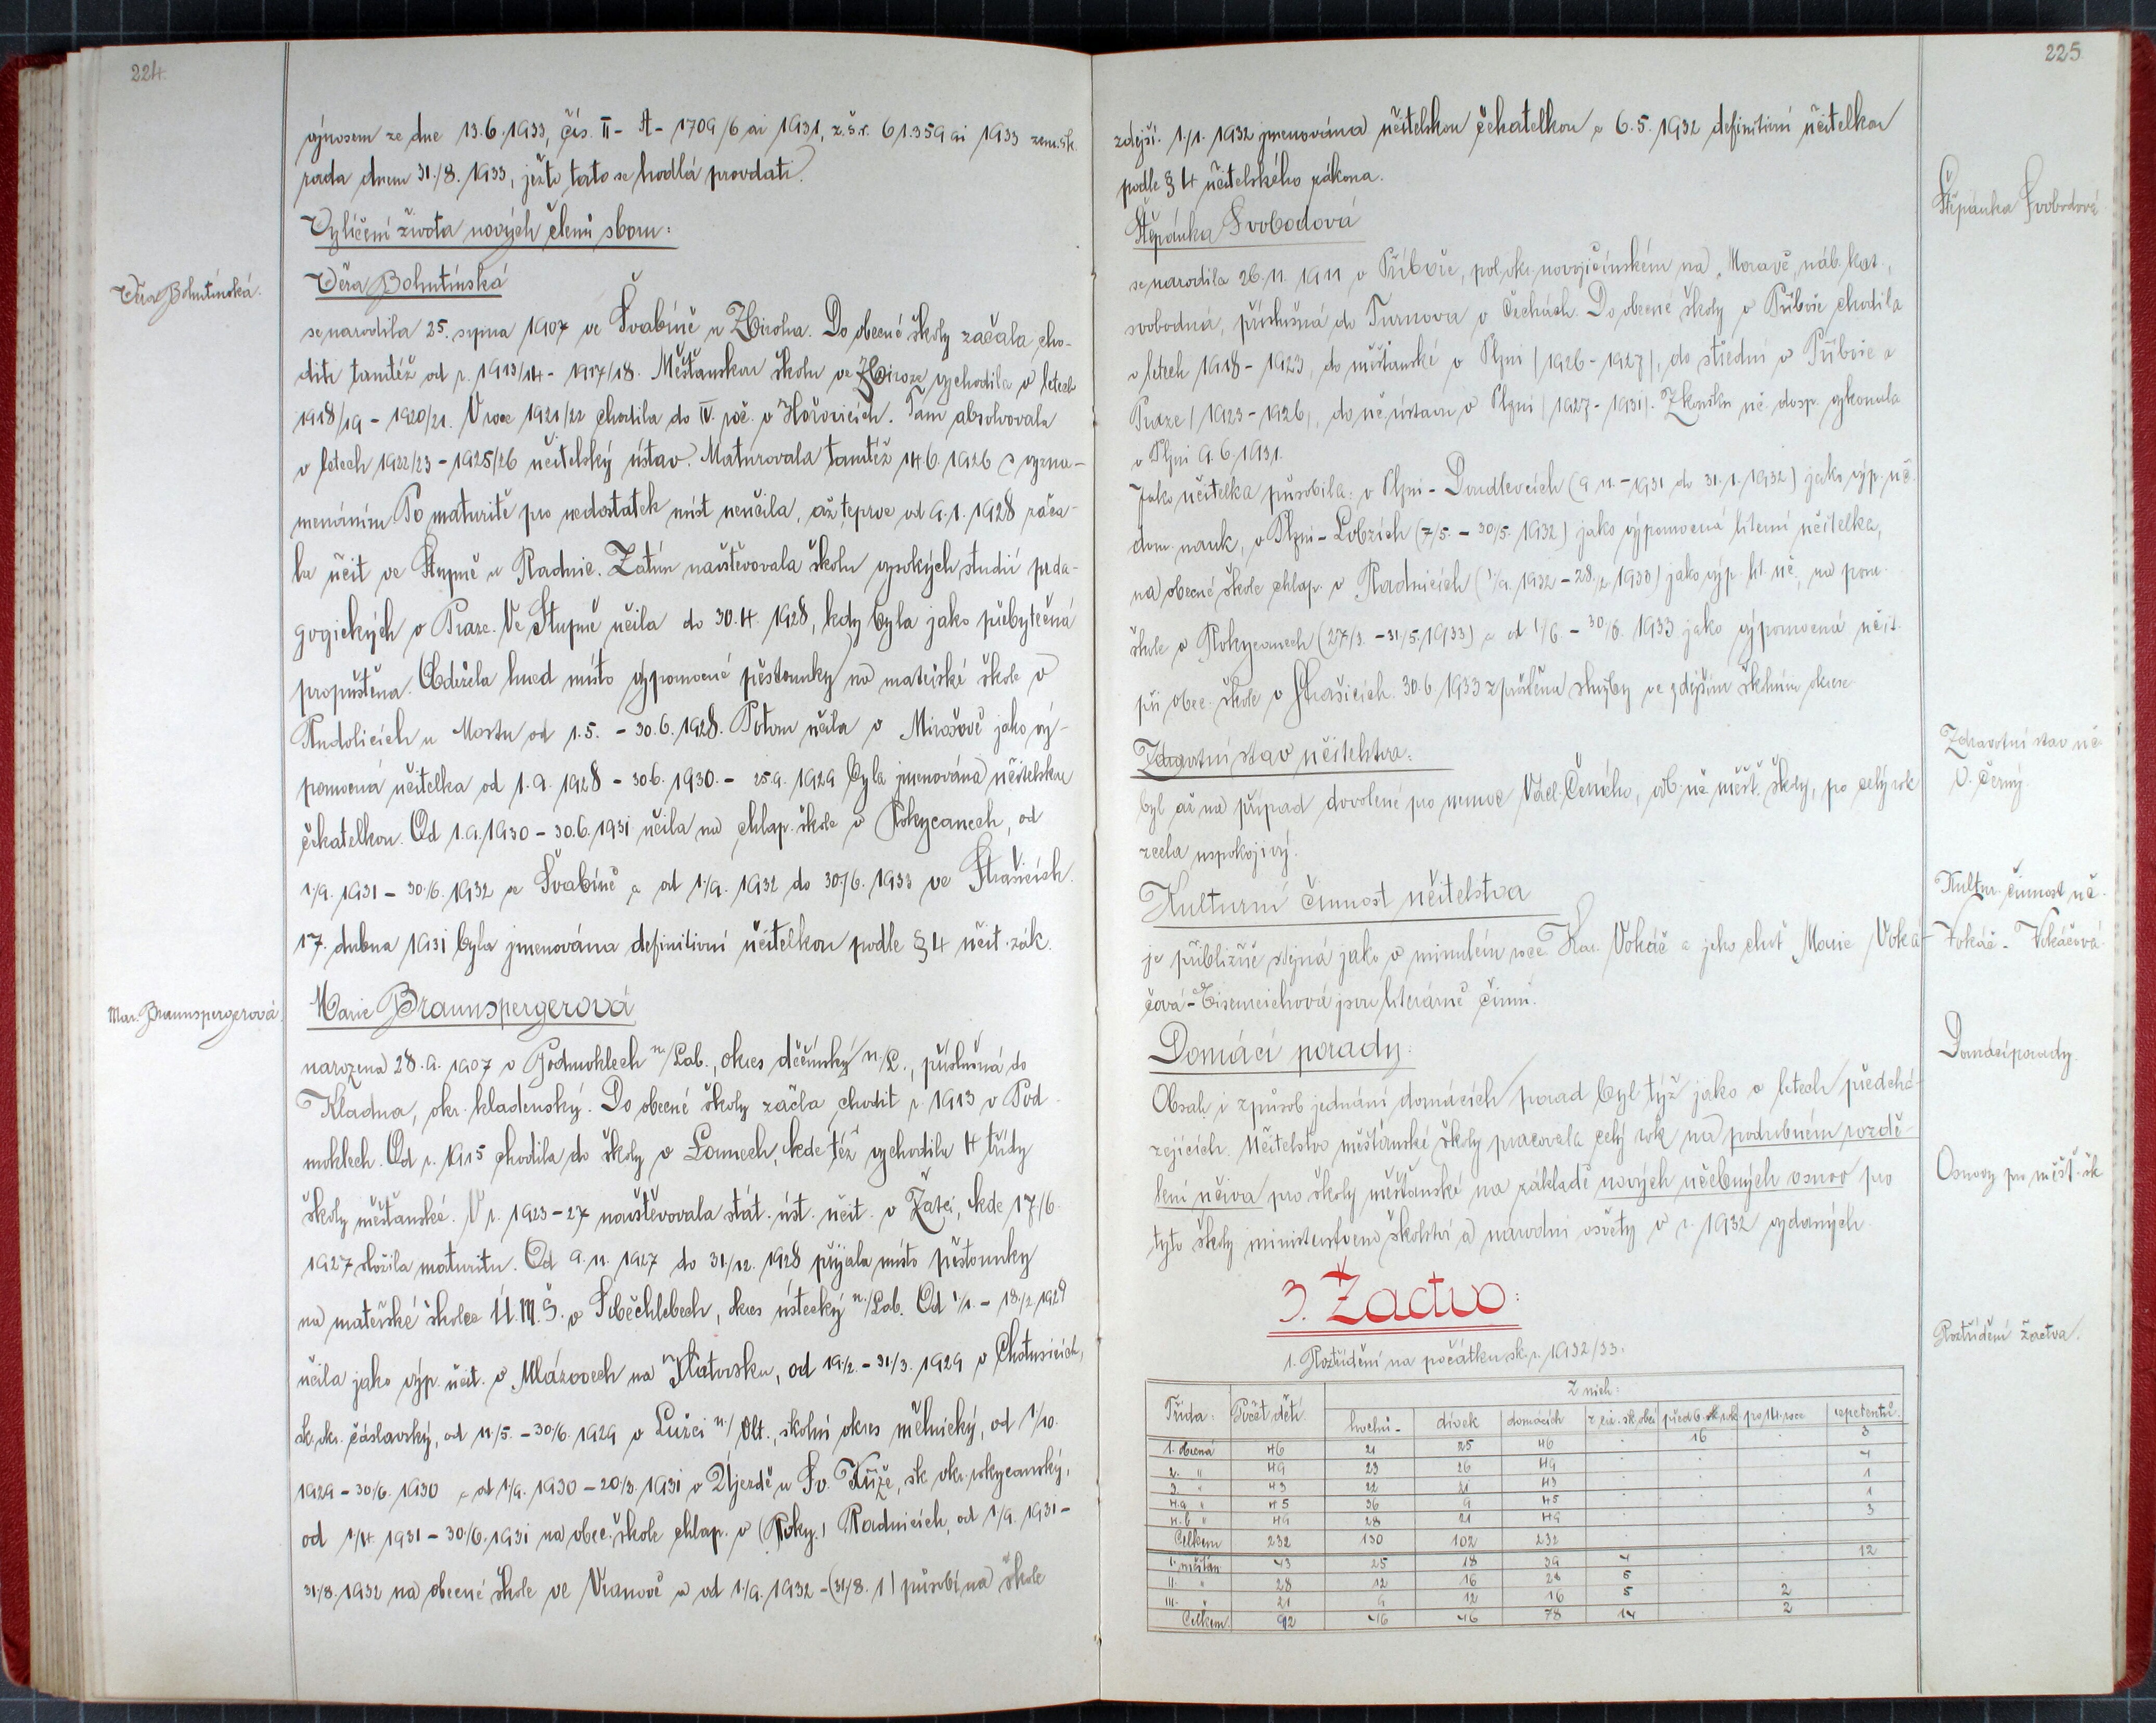 224.
výnosem ze dne 13.6.1933, čís. II-A-1709/6 ai 1931, z.š.r. 61.359 ai 1933 zem. šk.
rada dnem 31./8. 1933, ježto tato se hodlá provdati.
Vylíčení života nových členů sboru:
Věra Bohutínská.
Věra Bohutínská
se narodila 25. srpna 1907 ve Švabíně u Zbiroha. Do obecné školy začala cho-
diti tamtéž od r. 1913/14 - 1917/18. Měšťanskou školu ve Zbiroze vychodila v letech
1918/19 - 1920/21. V roce 1921/22 chodila do IV. roč. v Hořovicích. Tam absolvovala
v letech 1922/23 - 1925/26 učitelský ústav. Maturovala tamtéž 14.6. 1926 s vyzna-
menáním. Po maturitě pro nedostatek míst neučila, až teprve od 9.1. 1928 zača-
la učit ve Stupně u Radnic. Zatím navštěvovala školu vysokých studií peda-
gogických v Praze. Ve Stupně učila do 30.4. 1928, kdy byla jako přebytečná
propuštěna. Obdržela hned místo výpomocné pěstounky na mateřské škole v
Rudolicích u Mostu od 1.5. - 30.6. 1928. Potom učila v Mirošově jako vý-
pomocná učitelka od 1.9. 1928 - 30.6. 1930. - 25.9. 1929 byla jmenována učitelskou
čekatelkou. Od 1.9.1930 - 30.6. 1931 učila na chlap. škole v Rokycanech, od
1/9. 1931 - 30./6. 1932 ve Švabíně a od 1./9. 1932 do 30./6. 1933 ve Strašicích.
17. dubna 1931 byla jmenována definitivní učitelkou podle § 4 učit. zák.
Mar. Braunspergerová.
Marie Braunspergerová
narozena 28.9. 1907 v Podmoklech n./Lab., okres děčínský n./L., příslušná do
Kladna, okr. kladenský. Do obecné školy začla chodit r. 1913 v Pod-
moklech. Od r. 1915 chodila do školy v Lounech, kde též vychodila 4 třídy
školy měšťanské. V r. 1923-27 navštěvovala stát. úst. učit. v Žatci, kde 17/6.
1927 složila maturitu. Od 9.11. 1927 do 31/12. 1928 přijala místo pěstounky
na mateřské školce Ú.M.Š. v Šeběchlebech, okres ústecký n./Lab. Od 1/1. - 18./2 1929
učila jako výp. učit. v Mlázovech na Klatovsku, od 19./2. - 31./3. 1929 v Chotusicích,
šk. okr. čáslavský, od 11./5. - 30./6. 1929 v Lužci n./Vlt., školní okres mělnický, od 1/10.
1929 - 30./6. 1930 a od 1/9. 1930 - 20/3. 1931 v Újezdě u Sv. Kříže, šk. okr. rokycanský,
od 1/4. 1931 - 30./6. 1931 na obec. škole chlap. v (Roky.) Radnicích, od 1/9. 1931 -
31/8. 1932 na obecné škole ve Vranově a od 1./9. 1932 - (31/8. ) působí na škole
225
zdejší. 1./1. 1932 jmenována učitelskou čekatelkou a 6.5. 1932 definitivní učitelkou
podle § 4 učitelského zákona.
Štěpánka Svobodová
Štěpánka Svobodová
se narodila 26.11. 1911 v Příboře, pol. okr. novojičínském na Moravě, náb. kat.,
svobodná, příslušná do Turnova v Čechách. Do obecné školy v Příboře chodila
v letech 1918 - 1923, do měšťanské v Plzni (1926 - 1927), do střední v Příboře a
Praze (1923 - 1926), do uč. ústavu v Plzni (1927 - 1931). Zkoušku uč. dosp. vykonala
v Plzni 9.6. 1931.
Jako učitelka působila: v Plzni - Doudlevcích (9.11. - 1931 do 31.1. 1932) jako výp. uč.
dom. nauk, v Plzni - Lobzích (7/5. - 30/5. 1932) jako výpomocná literní učitelka,
na obecné škole chlap. v Radnicích (1/9. 1932 - 28./2. 1930) jako výp. lit. uč., na pom.
škole v Rokycanech (27/3. - 31/5. 1933) a od 1/6. - 30/6. 1933 jako výpomocná učit.
při obec. škole v Strašicích. 30.6. 1933 zproštěna služby ve zdejším školním okrese.
Zdravotní stav uč.
V. Černý.
Zdravotní stav učitelstva:
byl až na případ dovolené pro nemoc Václ. Černého, odb. uč. měšť. školy, po celý rok
zcela uspokojivý.
Kultur. činnost uč.
Vokáč - Vokáčová
Kulturní činnost učitelstva
je přibližně stejná jako v minulém roce. Kar. Vokáč a jeho choť Marie Voká-
čová-Eisenreichová jsou literárně činni.
Domácí porady.
Domácí porady:
Obsah i způsob jednání domácích porad byl týž jako v letech předchá-
zejících. Učitelstvo měšťanské školy pracovalo celý rok na podrobném rozdě-
Osnovy pro měšť. šk.
lení učiva pro školy měšťanské na základě nových učebných osnov pro
tyto školy ministerstvem školství a národní osvěty v r. 1932 vydaných.
3. Žactvo:
Roztřídění žactva.
1. Roztřídění na počátku šk. r. 1932/33.
Třída: Počet dětí Z nich:
hochů - dívek domácích z ciz. šk. obcí před 6. rok. po 14. roce repetentů.
1. obecná 46 21 25 46 . 16 . 3
2. " 49 23 26 49 . . . 4
3. " 43 22 21 43 . . . 1
4.a " 45 36 9 45 . . . 1
4.b " 49 28 21 49 . . . 3
Celkem 232 130 102 232 . . . 12
I. měšťan. 43 25 18 39 4 . . .
II. " 28 12 16 28 5 . . .
III. " 21 9 12 16 5 . 2 .
Celkem 92 46 46 78 14 . 2 .